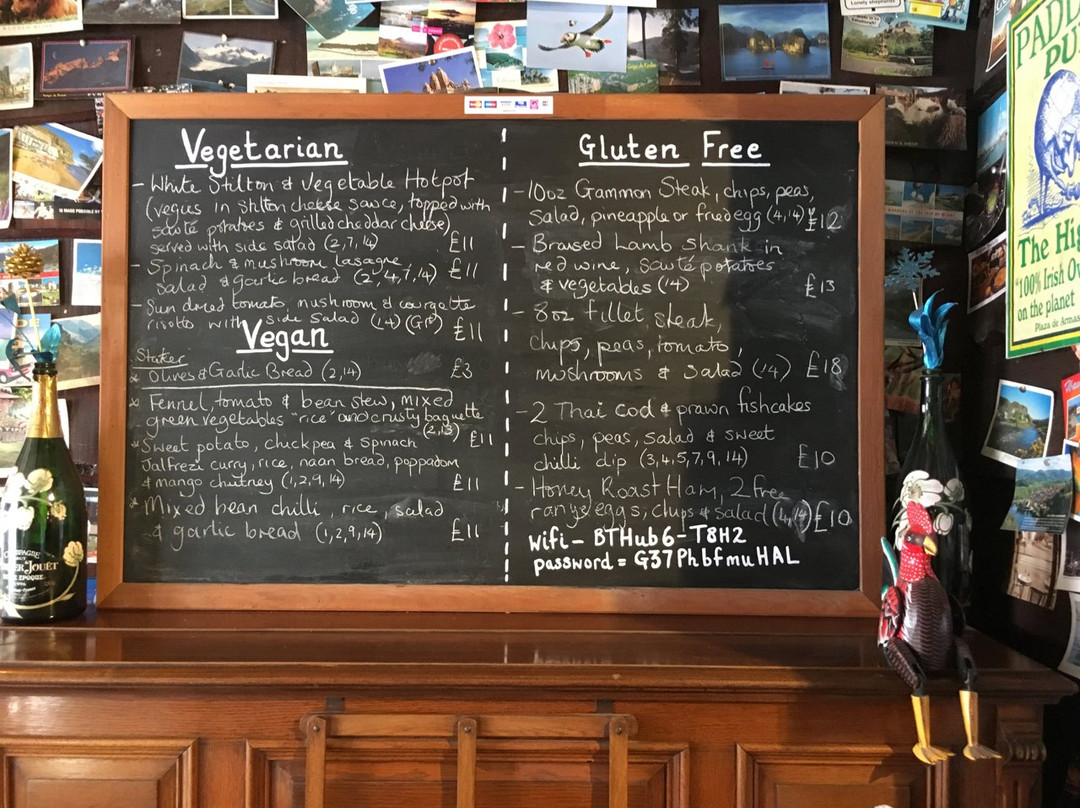 Vegetarian
- White Stilton & Vegetable Hotpot
(vegies in Stilton cheese sauce, topped with
sauté potatoes & grilled cheddar cheese)
served with side salad (2,7,14) £11
- Spinach & mushroom lasagne
salad & garlic bread (2,4,7,14) £11
- Sun dried tomato, mushroom & courgette
risotto with side salad (14) (GF) £11
Vegan
Starter
* Olives & Garlic Bread (2,14) £3
* Fennel, tomato & bean stew, mixed
green vegetables "rice" and crusty baguette
(2,13) £11
* Sweet potato, chickpea & spinach
Jalfrezi curry, rice, naan bread, poppadom
& mango chutney (1,2,9,14) £11
* Mixed bean chilli, rice, salad
& garlic bread (1,2,9,14) £11
Gluten Free
- 10oz Gammon Steak, chips, peas,
salad, pineapple or fried egg (4,14) £12
- Braised Lamb Shank in
red wine, sauté potatoes
& vegetables (14) £13
- 8oz fillet steak,
chips, peas, tomato,
mushrooms & salad (14) £18
- 2 Thai Cod & prawn fishcakes
chips, peas, salad & sweet
chilli dip (3,4,5,7,9,14) £10
- Honey Roast Ham, 2 free
range eggs, chips & salad (4,14) £10
wifi - BTHub6-T8H2
password = G37PhbfmuHAL
PADD
PU
The Hig
"100% Irish O
on the planet
Plaza de Armas